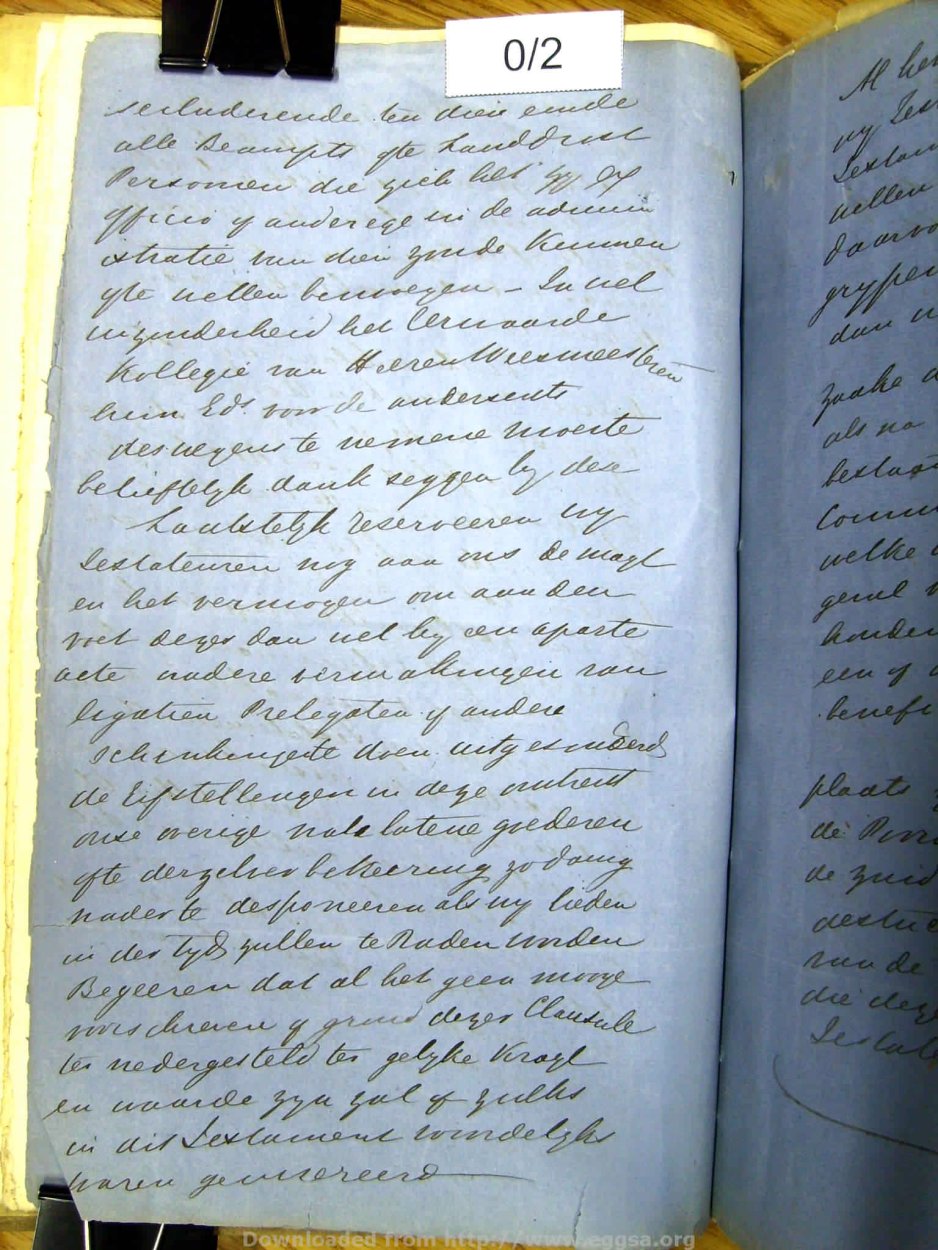 0/2
secluderende ten dien einde
alle Beampts ofte Landdrost
Personen die zich het zy ex
officio of anderege in de admini
istratie van dien zoude kunnen
ofte willen bemoeyen - In wel
inzonderheid het Eerwaarde
Kollegie van Heeren Weesmeesteren
hun Eds. voor de andersints
deswegens te nemene moeite
belieftelyk dank seggen by dese
Laatstelyk reserveeren wy
Testateuren nog aan ons de magt
en het vermogen om aan den
voet dezes dan wel by een aparte
acte nadere vermakingen van
ligatien Prelegaten of andere
schenkingente doen uitgesonderd
de Erfstellengen in deze omtrent
onse overige nalelatene goederen
ofte derzelver bekeering zodanig
nader te desponeeren als wy lieden
in der tyd zullen te Raden worden
Begeeren dat al het geen moge
voorschreven of grond dezes Clausule
ter nedergesteld ter gelyke Kragt
en waarde zyn zal of zulks
in dit Testament woordelyks
waren geinsereerd
Al he
wy Tes
Testam
willen
daarvo
gryfen
dan
zaake
als na
bestaa
Comm
welke
houden
een of
benefi
plaats
de Pro
de zuid
van de
die deze
Testate
Downloaded from http://www.eggsa.org